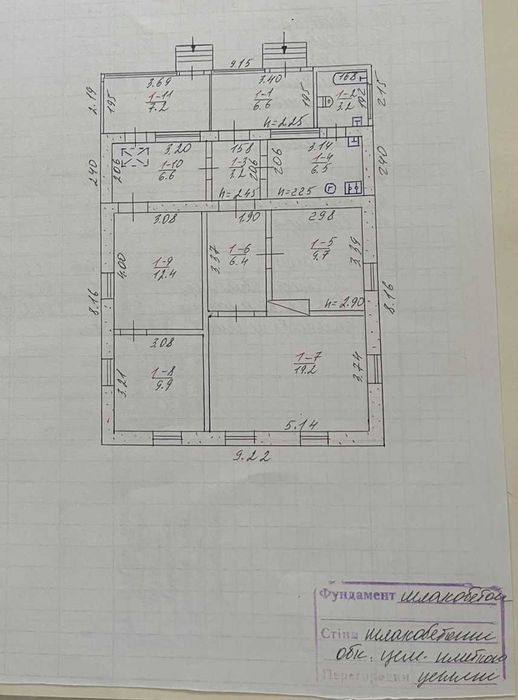 9.15
3.69
1-11
7.2
1.95
2.19
3.40
1-1
6.6
1.95
h=2.25
1.68
1-2
3.2
1.92
2.15
3.20
1-10
6.6
2.06
2.40
1.58
1-3
3.2
2.06
h=2.45
3.14
1-4
6.5
2.06
h=2.25
2.40
3.08
1-9
12.4
4.00
1.90
1-6
6.4
3.37
2.98
1-5
9.7
3.39
h=2.90
8.16
8.16
3.08
1-8
9.9
3.21
1-7
19.2
3.74
5.14
9.22
Фундамент шлакобетон
Стіни шлакобетонні
обк. цем. плиткою
Перегородки цегляні